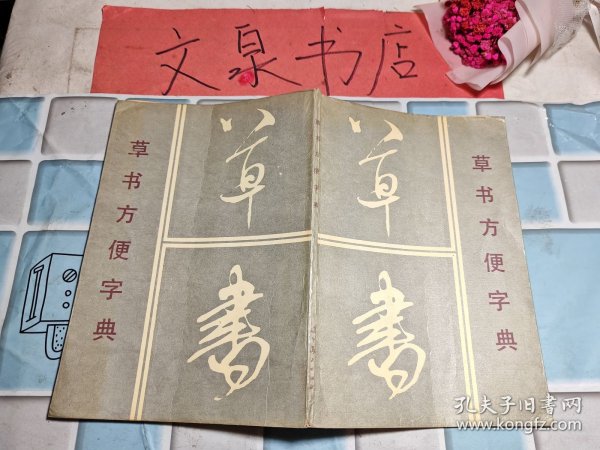 文泉书店
草书方便字典
草書
草書
草书方便字典
孔夫子旧书网
www.kongfz.com